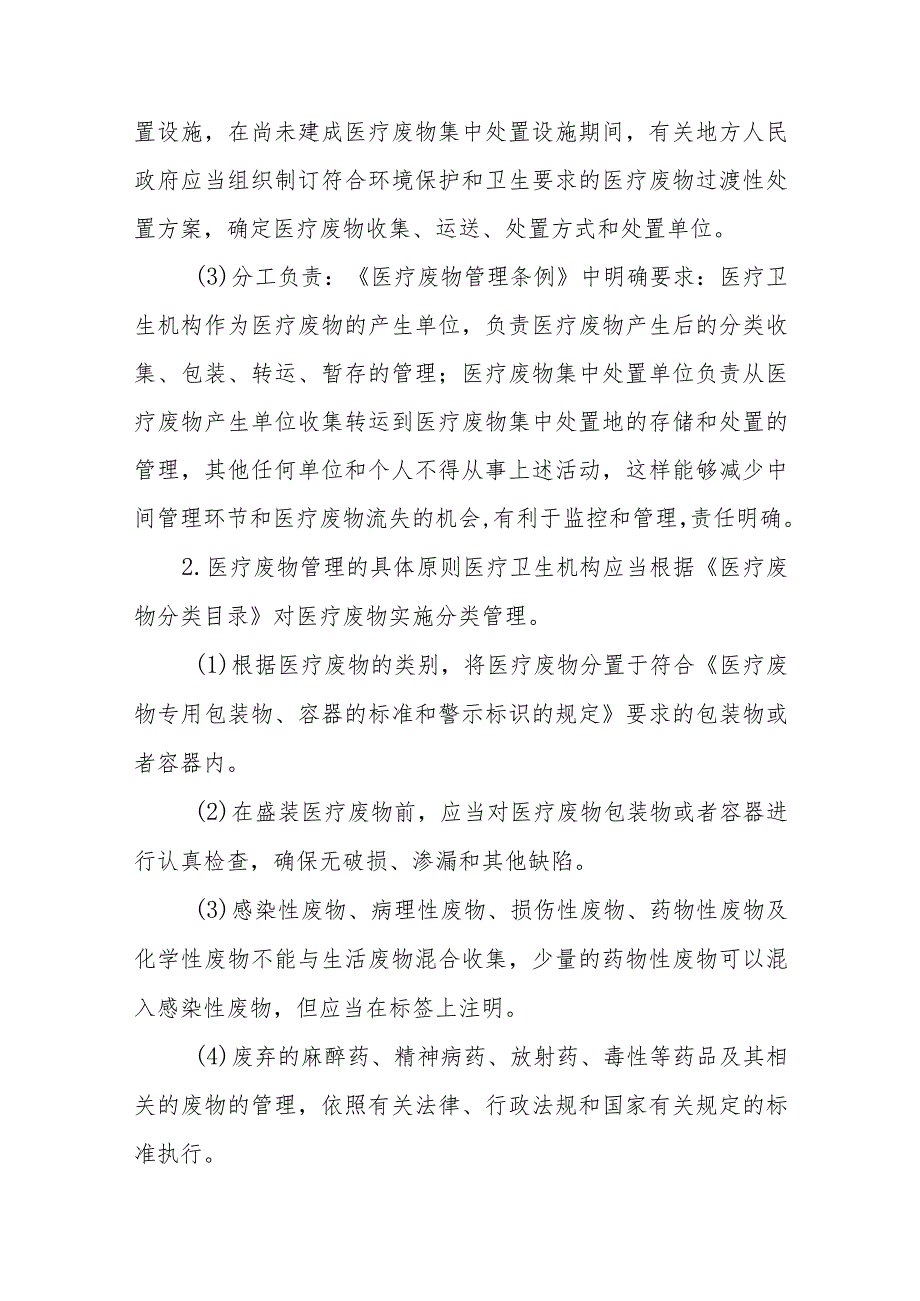 置设施，在尚未建成医疗废物集中处置设施期间，有关地方人民
政府应当组织制订符合环境保护和卫生要求的医疗废物过渡性处
置方案，确定医疗废物收集、运送、处置方式和处置单位。
(3)分工负责：《医疗废物管理条例》中明确要求：医疗卫
生机构作为医疗废物的产生单位，负责医疗废物产生后的分类收
集、包装、转运、暂存的管理；医疗废物集中处置单位负责从医
疗废物产生单位收集转运到医疗废物集中处置地的存储和处置的
管理，其他任何单位和个人不得从事上述活动，这样能够减少中
间管理环节和医疗废物流失的机会,有利于监控和管理,责任明确。
2.医疗废物管理的具体原则医疗卫生机构应当根据《医疗废
物分类目录》对医疗废物实施分类管理。
(1)根据医疗废物的类别，将医疗废物分置于符合《医疗废
物专用包装物、容器的标准和警示标识的规定》要求的包装物或
者容器内。
(2)在盛装医疗废物前，应当对医疗废物包装物或者容器进
行认真检查，确保无破损、渗漏和其他缺陷。
(3)感染性废物、病理性废物、损伤性废物、药物性废物及
化学性废物不能与生活废物混合收集，少量的药物性废物可以混
入感染性废物，但应当在标签上注明。
(4)废弃的麻醉药、精神病药、放射药、毒性等药品及其相
关的废物的管理，依照有关法律、行政法规和国家有关规定的标
准执行。